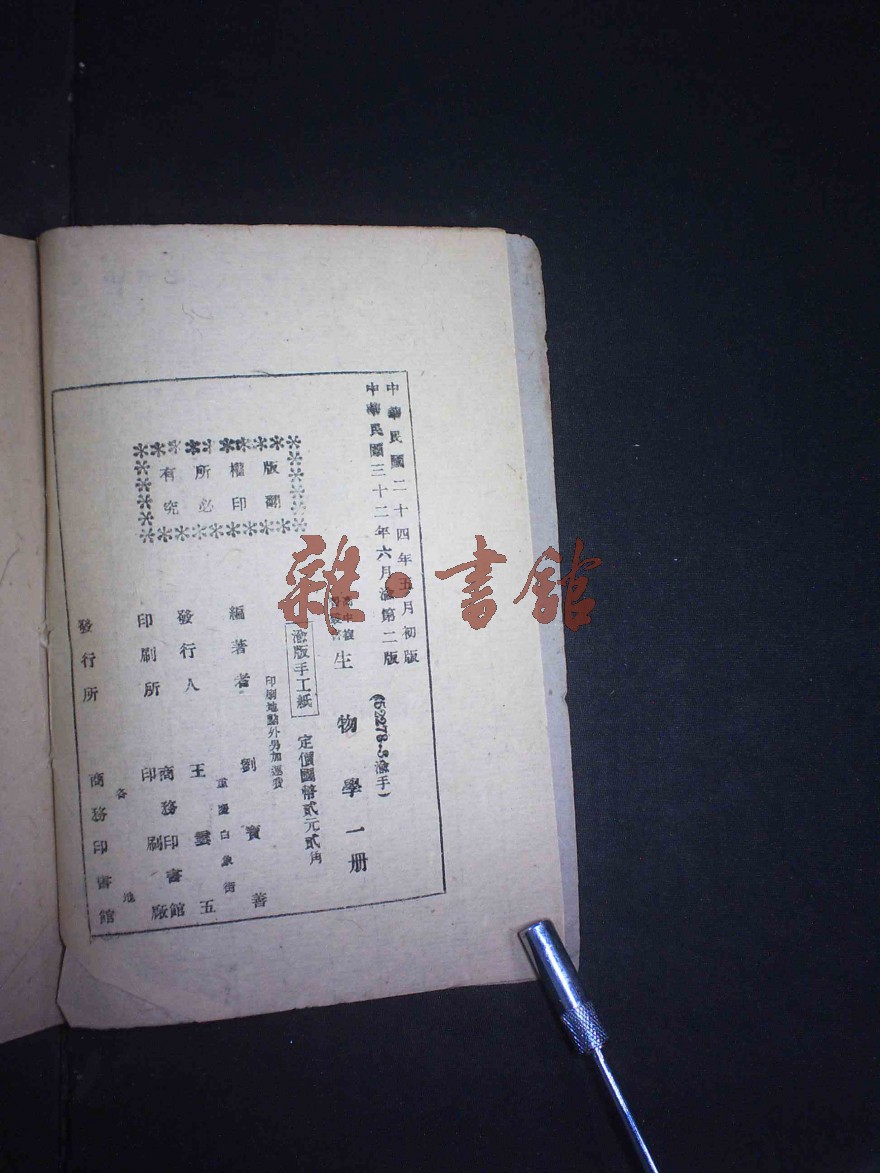 中華民國二十四年五月初版
中華民國三十二年六月渝第二版
(52278·3渝手)
生物學一册
渝版手工紙
定價國幣貳元貳角
印刷地點外另加運費
編著者 劉寶善
重慶白象街
發行人 王雲五
印刷所 商務印書館印刷廠
各地
發行所 商務印書館
版權所有
翻印必究
雜·書館